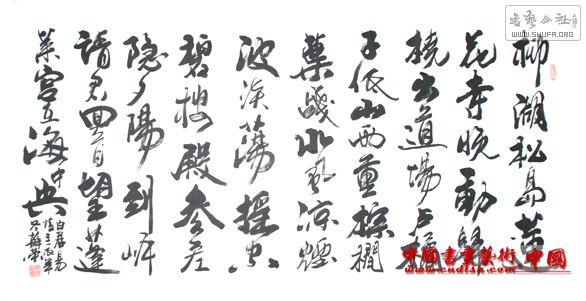 書藝公社
WWW.SHUFA.ORG
柳湖松島蓮
花寺晚動歸
橈出道場盧橘
子低山雨重棕櫚
葉戰水風涼煙
波淡蕩搖空
碧樓殿參差
隐夕陽到岸
請君囬首望蓬
萊宮在海中央
白居易
中國書畫藝術 中國